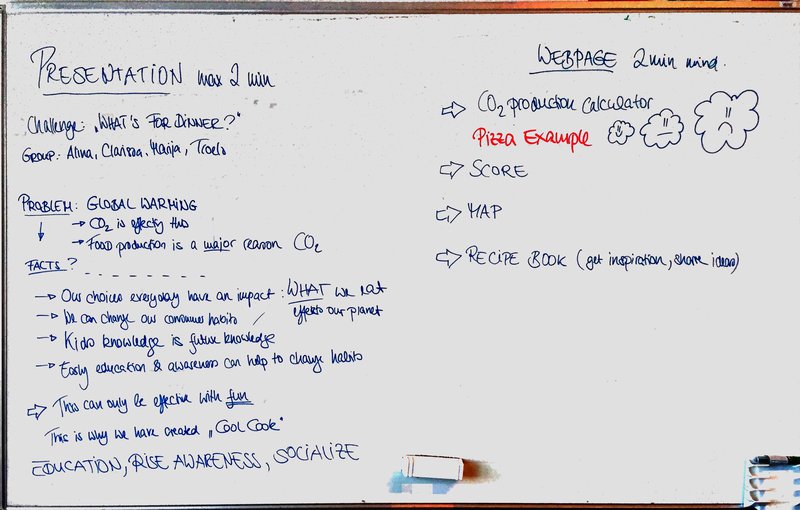 PRESENTATION max 2 min
Challenge: „WHAT'S FOR DINNER?"
GROUP: Alina, Clarissa, Marija, Troels
PROBLEM: GLOBAL WARMING
→ CO₂ is effectig this
→ FOOD production is a major reason CO₂
FACTS? - - - - - - - -
→ Our choices everyday have an impact: WHAT we eat
effects our planet
→ We can change our consumer habits
→ Kids knowledge is future knowledge
→ Early education & awareness can help to change habits
⇨ This can only be effective with fun
This is why we have created „COOL COOK"
EDUCATION, RISE AWARENESS, SOCIALIZE
WEBPAGE 2 min mind.
⇨ CO₂ production calculator
Pizza Example
⇨ SCORE
⇨ MAP
⇨ RECIPE BOOK (get inspiration, share ideas)